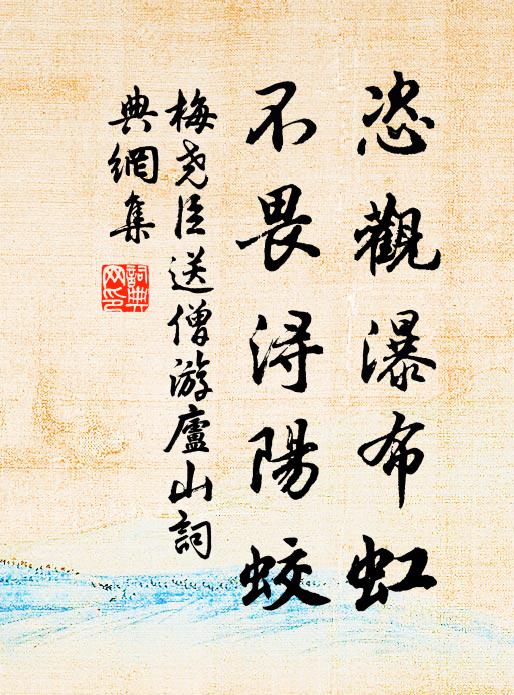 恣觀瀑布虹
不畏浔陽蛟
梅尧臣送僧游廬山詞
典網集
詞典
网印